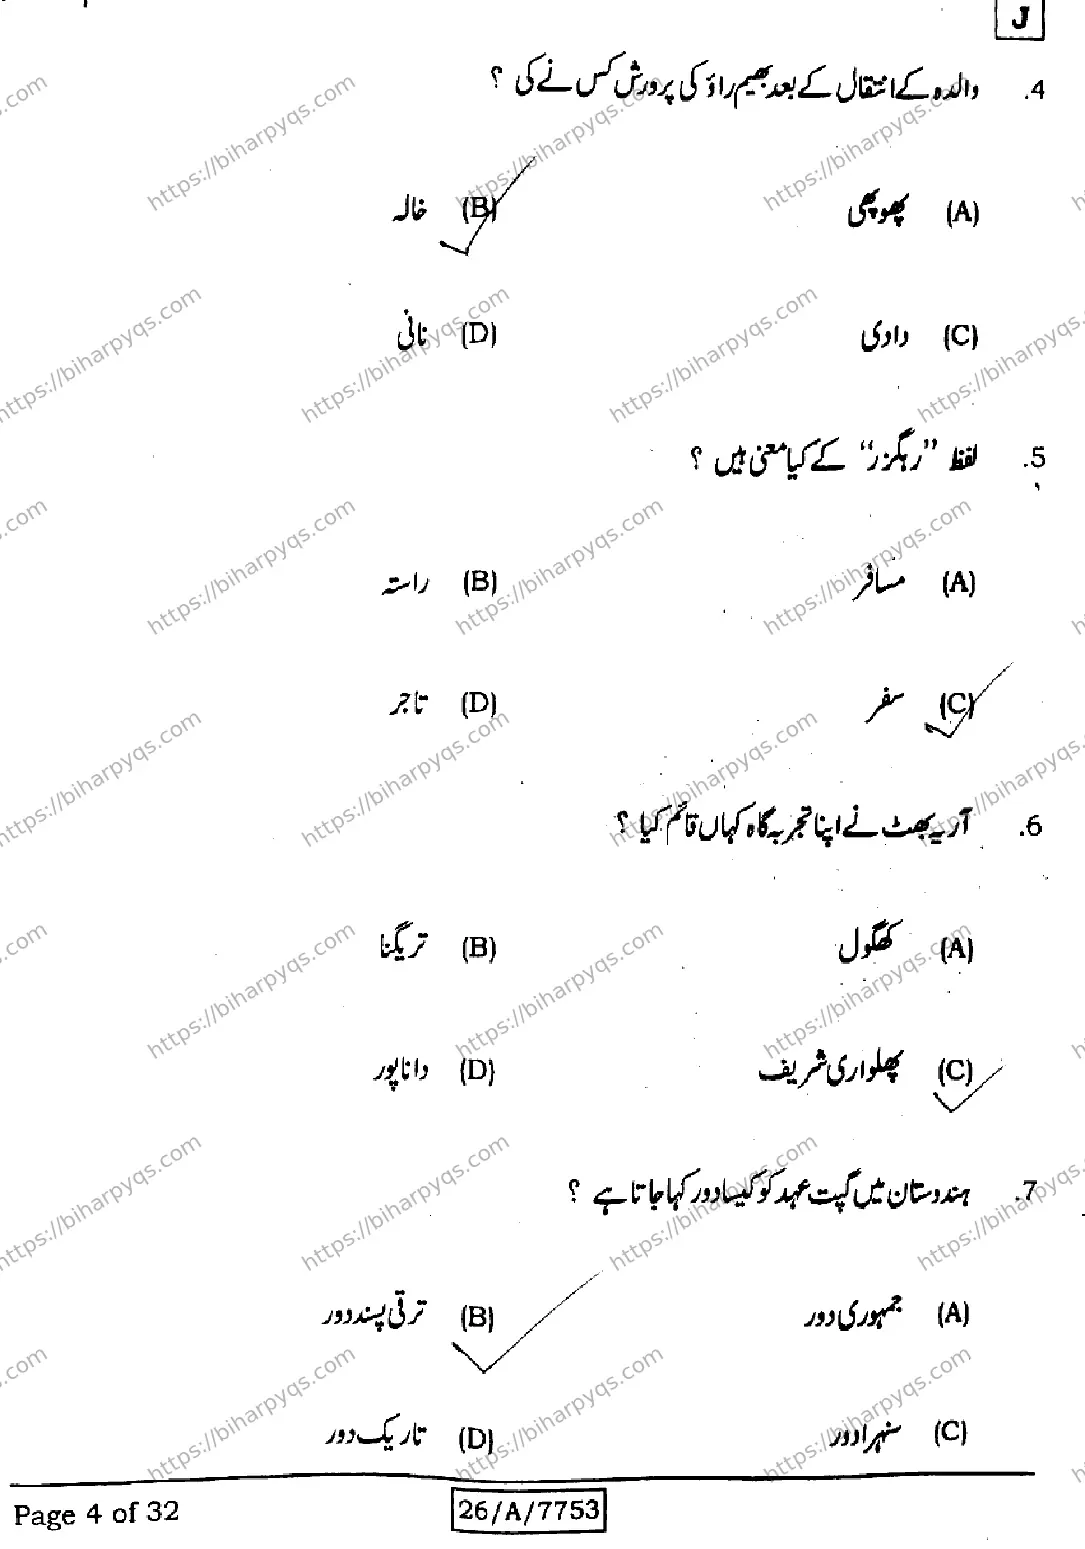 J
4. والدہ کے انتقال کے بعد بھیم راؤ کی پرورش کس نے کی ؟
(A) پھوپھی (B) خالہ
(C) دادی (D) نانی
5. لفظ ”رہگزر“ کے کیا معنی ہیں ؟
(A) مسافر (B) راستہ
(C) سفر (D) تاجر
6. آریہ بھٹ نے اپنا تجربہ گاہ کہاں قائم کیا ؟
(A) کھگول (B) تریگنا
(C) پھلواری شریف (D) داناپور
7. ہندوستان میں گپت عہد کو کیسا دور کہا جاتا ہے ؟
(A) جمہوری دور (B) ترقی پسند دور
(C) سنہرا دور (D) تاریک دور
Page 4 of 32 26/A/7753
https://biharpyqs.com